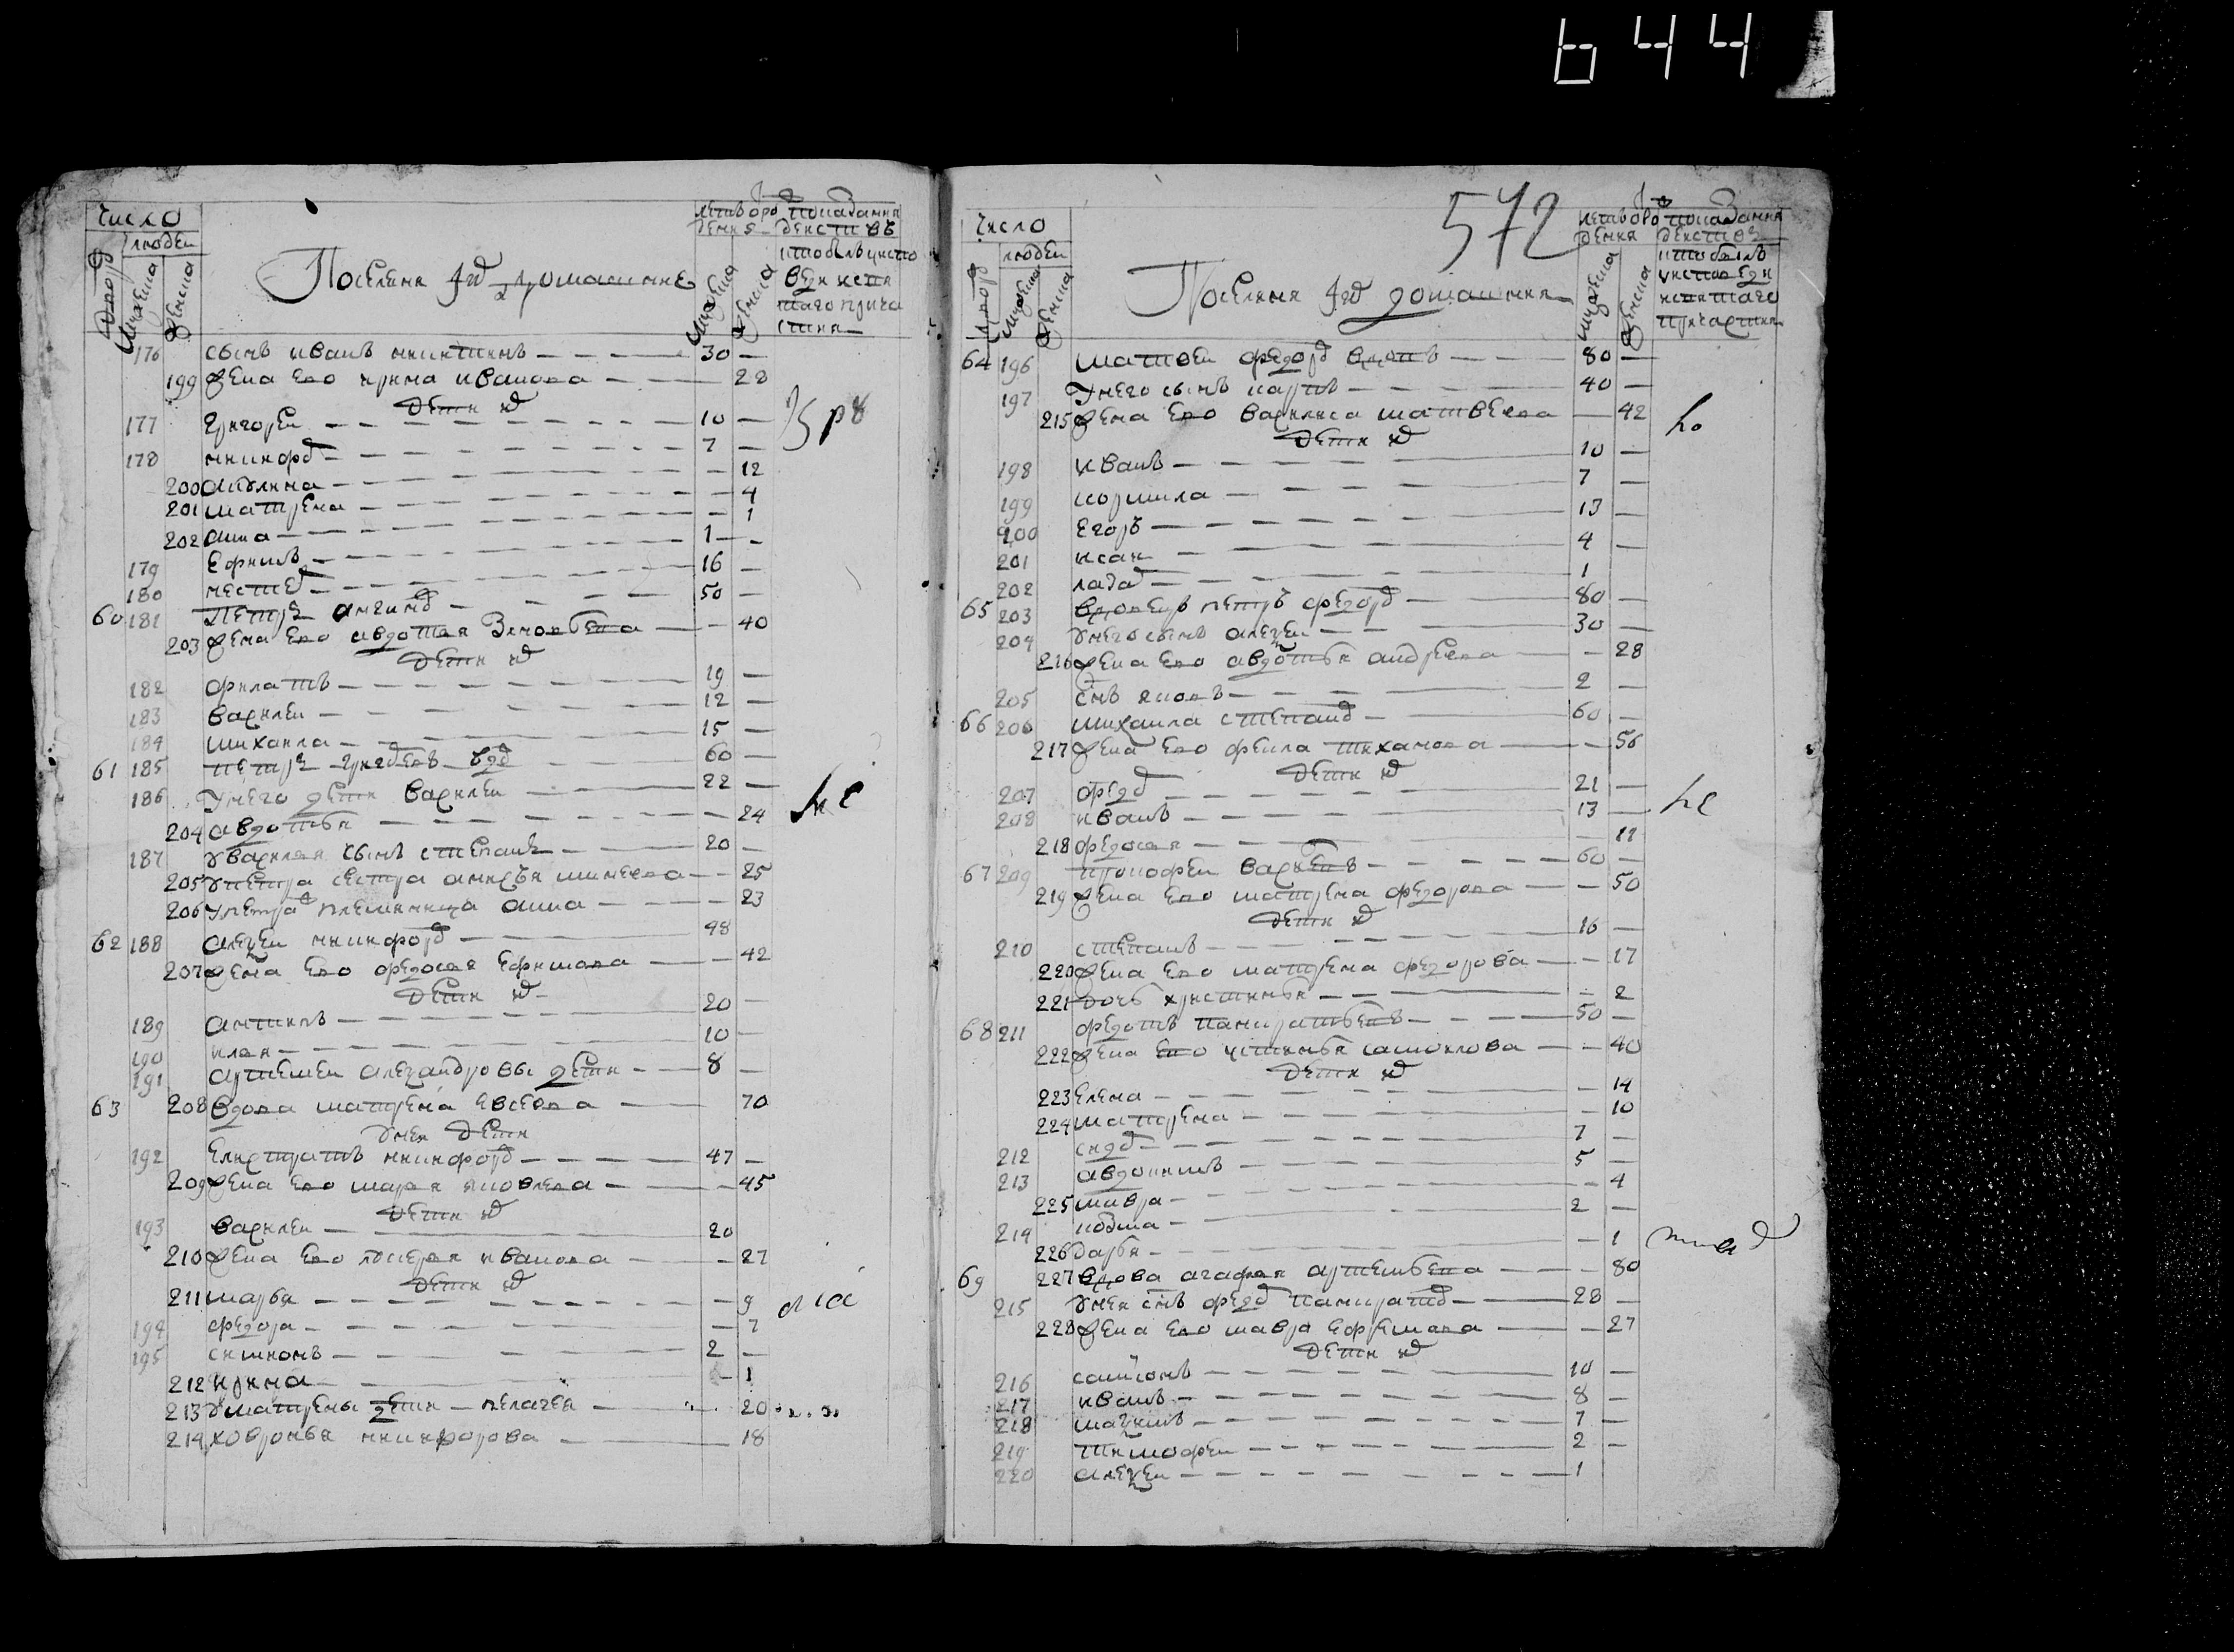 644
число
людей
дворо
мужеска
женска
Поселяня и домашние
летъ от рождения
мужеска
женска
показание действъ
кто былъ у исповеди и святаго причастия
176 сынъ иванъ никитинъ 30
199 жена ево ирина иванова 28
дети их
177 григорей 10
178 никифор 7
200 акулина 12
201 матрена 4
202 анна 1
179 ефимъ 1
180 нестер 16
60 181 Петръ 50
203 жена ево авдотья зиновьева 40
дети их
182 филатъ 19
183 василей 12
184 михаила 15
61 185 петръ вдов 60
186 У него дети василей 22
204 авдотья 24
187 у василья сынъ степанъ 20
205 у петра сестра 25
206 у петра племянница анна 23
62 188 алексей никифоров 48
207 жена ево федосья ефимова 42
дети их
189 антипъ 20
190 илья 10
191 артемей александровы дети 8
63 208 вдова матрена евсеева 70
у нея дети
192 елистратъ никифоров 47
209 жена ево марья яковлева 45
дети их
193 василей 20
210 жена ево иванова 27
дети их
211 марья 9
194 федора 7
195 симионъ 2
212 ирина 1
213 у матрены дети пелагея 20
214 ховронья никифорова 18
572
число
людей
дворо
мужеска
женска
Поселяня и домашния
летъ от рождения
мужеска
женска
показание действъ
кто былъ у исповеди и святаго причастия
64 196 матвей федоров вдовъ 80
197 У него сынъ карпъ 40
215 жена ево василиса матвеева 42
дети их
198 иванъ 10
199 кормила 7
200 егоръ 13
201 исаи 4
202 лазар 1
65 203 вдовецъ петръ федоров 80
204 у него сынъ алексей 30
216 жена ево авдотья андреева 28
205 снъ яковъ 2
66 206 михаила степанов 60
217 жена ево фекла тиханова 56
дети их
207 федор 21
208 иванъ 13
218 федосья 11
67 209 прокофей васильевъ 60
219 жена ево матрена федорова 50
дети их
210 степанъ 16
220 жена ево матрена федорова 17
221 дочь христинья 2
68 211 федотъ панкратьевъ 50
222 жена ево устинья самоилова 40
дети их
223 елена 14
224 матрена 10
212 сидор 7
213 авдокимъ 5
225 мавра 4
214 козма 2
226 дарья 1
69 227 вдова агафья артемьева 80
215 у нея снъ федор панкратов 28
228 жена ево мавра ефремова 27
дети их
216 самсонъ 10
217 иванъ 8
218 максимъ 7
219 тимофей 2
220 алексей 1